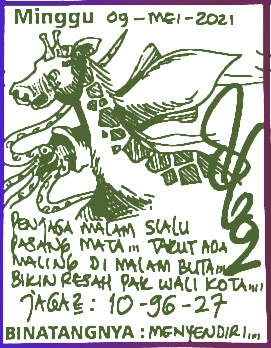 Minggu 09 - MEI - 2021
PENJAGA MALAM SLALU
PASANG MATA... TAKUT ADA
MALING DI MALAM BUTA...
BIKIN RESAH PAK WALI KOTA....
JAGA2 : 10-96-27
BINATANGNYA : MENYENDIRI...